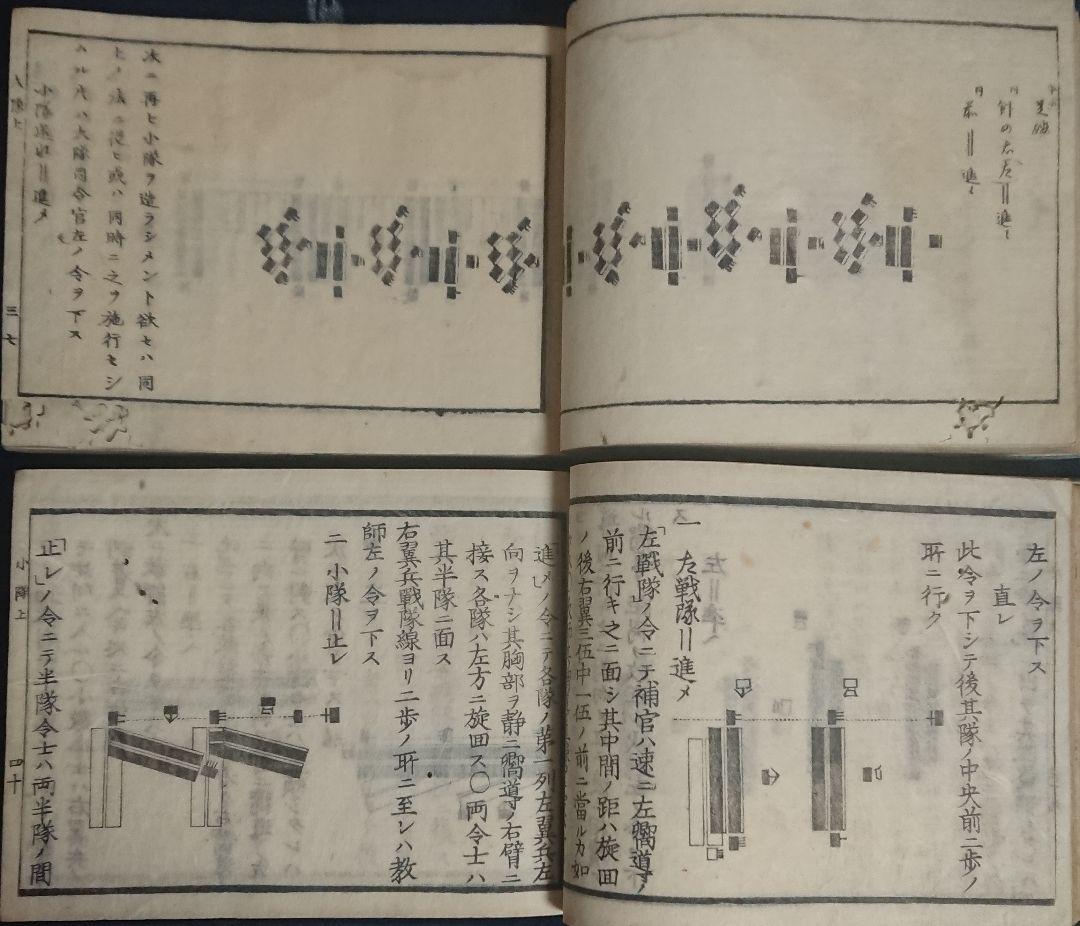 針の左左〢進メ
〢進メ
次ニ再ヒ小隊ヲ造ラシメント欲セハ同
ヒノ法ニ従ヒ或ハ同時ニ之ヲ施行セシ
ムル代ハ大隊司令官左ノ令ヲ下ス
大隊上
三七
左ノ令ヲ下ス
直レ
此令ヲ下シテ後其隊ノ中央前二歩ノ
所ニ行ク
左戦隊〢進メ
「左戦隊」ノ令ニテ補官ハ速ニ左嚮導ノ
前ニ行キ之ニ面シ其中間ノ距ハ旋回
ノ後右翼三伍中一伍ノ前ニ當ルカ如
進メノ令ニテ各隊ノ第一列左翼兵左
向ヲナシ其胸部ヲ静ニ嚮導ノ右臂ニ
接ス各隊ハ左方ニ旋回ス〇両令士ハ
其半隊ニ面ス
右翼兵戰隊線ヨリ二歩ノ所ニ至レハ教
師左ノ令ヲ下ス
二 小隊〢止レ
「止レ」ノ令ニテ半隊令士ハ両半隊ノ間
小隊上
四十